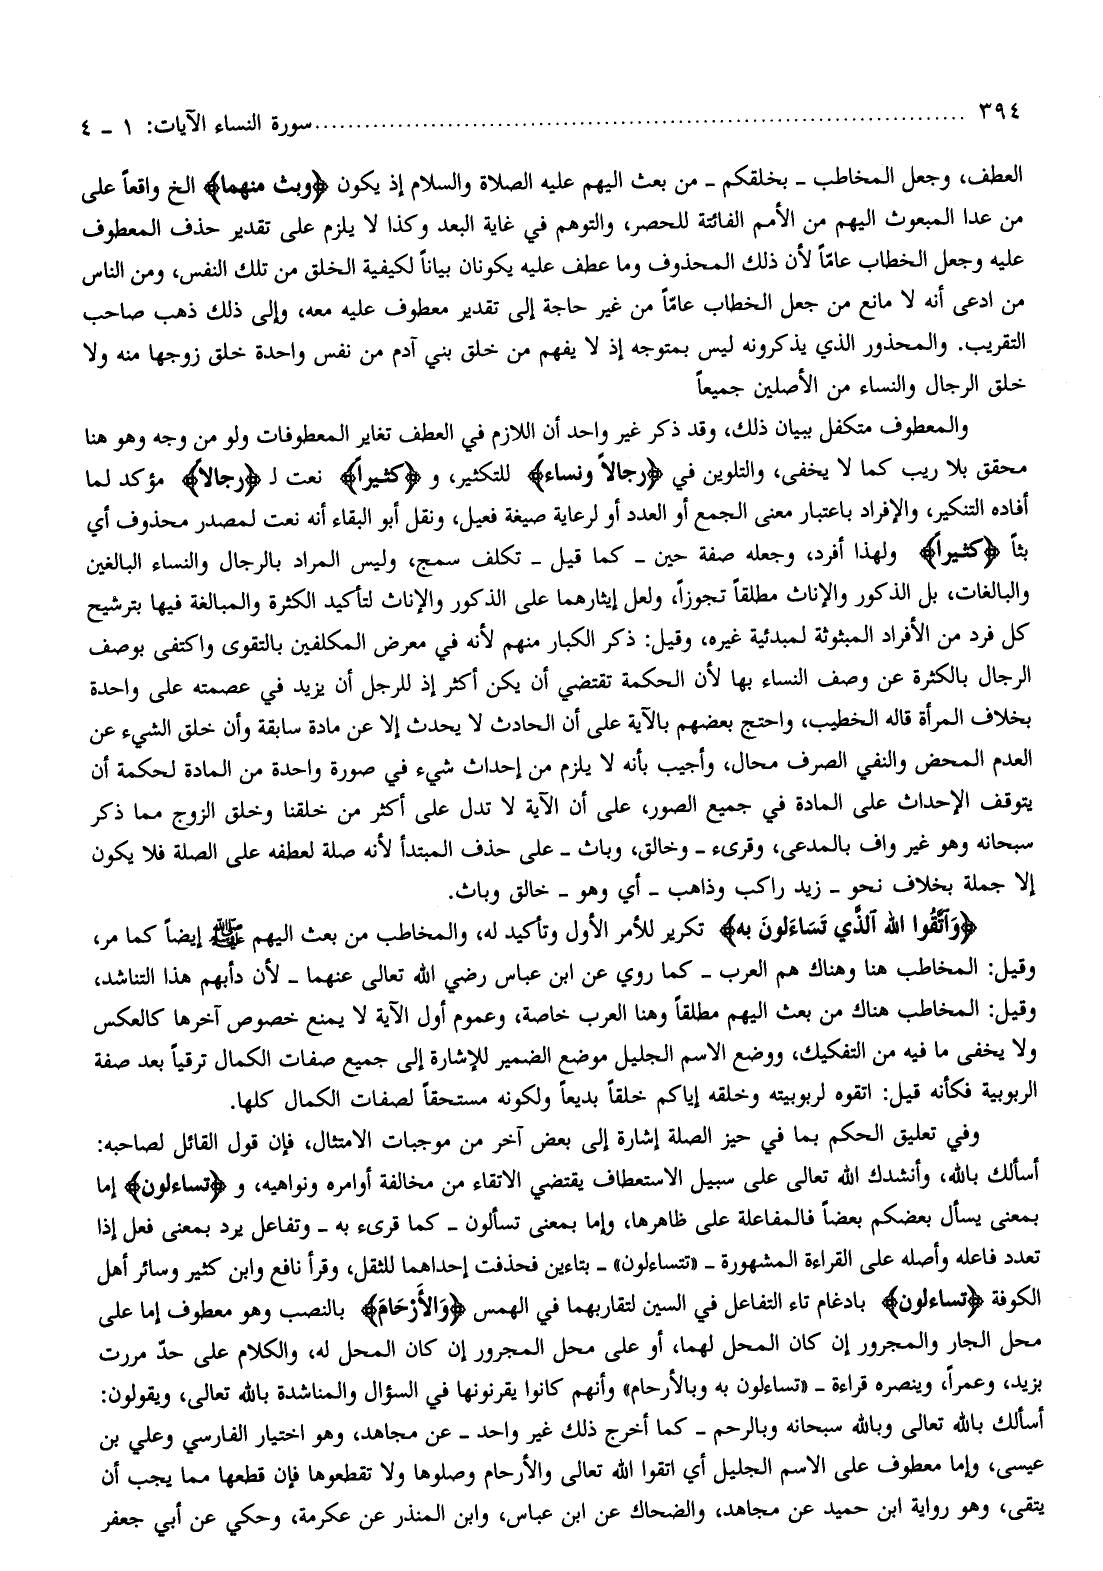 ٣٩٤ ........ سورة النساء الآيات: ١ - ٤
العطف، وجعل المخاطب - بخلقكم - من بعث اليهم عليه الصلاة والسلام إذ يكون ﴿وبث منهما﴾ الخ واقعاً على
من عدا المبعوث اليهم من الأمم الفائتة للحصر، والتوهم في غاية البعد وكذا لا يلزم على تقدير حذف المعطوف
عليه وجعل الخطاب عامّاً لأن ذلك المحذوف وما عطف عليه يكونان بياناً لكيفية الخلق من تلك النفس، ومن الناس
من ادعى أنه لا مانع من جعل الخطاب عامّاً من غير حاجة إلى تقدير معطوف عليه معه، وإلى ذلك ذهب صاحب
التقريب. والمحذور الذي يذكرونه ليس بمتوجه إذ لا يفهم من خلق بني آدم من نفس واحدة خلق زوجها منه ولا
خلق الرجال والنساء من الأصلين جميعاً
والمعطوف متكفل ببيان ذلك، وقد ذكر غير واحد أن اللازم في العطف تغاير المعطوفات ولو من وجه وهو هنا
محقق بلا ريب كما لا يخفى، والتلوين في ﴿رجالاً ونساء﴾ للتكثير، و ﴿كثيراً﴾ نعت لـ ﴿رجالاً﴾ مؤكد لما
أفاده التنكير، والإفراد باعتبار معنى الجمع أو العدد أو لرعاية صيغة فعيل، ونقل أبو البقاء أنه نعت لمصدر محذوف أي
بثاً ﴿كثيراً﴾ ولهذا أفرد، وجعله صفة حين - كما قيل - تكلف سمج، وليس المراد بالرجال والنساء البالغين
والبالغات، بل الذكور والإناث مطلقاً تجوزاً، ولعل إيثارهما على الذكور والإناث لتأكيد الكثرة والمبالغة فيها بترشيح
كل فرد من الأفراد المبثوثة لمبدئية غيره، وقيل: ذكر الكبار منهم لأنه في معرض المكلفين بالتقوى واكتفى بوصف
الرجال بالكثرة عن وصف النساء بها لأن الحكمة تقتضي أن يكن أكثر إذ للرجل أن يزيد في عصمته على واحدة
بخلاف المرأة قاله الخطيب، واحتج بعضهم بالآية على أن الحادث لا يحدث إلا عن مادة سابقة وأن خلق الشيء عن
العدم المحض والنفي الصرف محال، وأجيب بأنه لا يلزم من إحداث شيء في صورة واحدة من المادة لحكمة أن
يتوقف الإحداث على المادة في جميع الصور، على أن الآية لا تدل على أكثر من خلقنا وخلق الزوج مما ذكر
سبحانه وهو غير واف بالمدعى، وقرىء - وخالق، وباث - على حذف المبتدأ لأنه صلة لعطفه على الصلة فلا يكون
إلا جملة بخلاف نحو - زيد راكب وذاهب - أي وهو - خالق وباث.
﴿وَٱتَّقُوا الله ٱلَّذِي تَسَاءَلونَ به﴾ تكرير للأمر الأول وتأكيد له، والمخاطب من بعث اليهم ﷺ إيضاً كما مر،
وقيل: المخاطب هنا وهناك هم العرب - كما روي عن ابن عباس رضي الله تعالى عنهما - لأن دأبهم هذا التناشد،
وقيل: المخاطب هناك من بعث اليهم مطلقاً وهنا العرب خاصة، وعموم أول الآية لا يمنع خصوص آخرها كالعكس
ولا يخفى ما فيه من التفكيك، ووضع الاسم الجليل موضع الضمير للإشارة إلى جميع صفات الكمال ترقياً بعد صفة
الربوبية فكأنه قيل: اتقوه لربوبيته وخلقه إياكم خلقاً بديعاً ولكونه مستحقاً لصفات الكمال كلها.
وفي تعليق الحكم بما في حيز الصلة إشارة إلى بعض آخر من موجبات الامتثال، فإن قول القائل لصاحبه:
أسألك بالله، وأنشدك الله تعالى على سبيل الاستعطاف يقتضي الاتقاء من مخالفة أوامره ونواهيه، و ﴿تساءلون﴾ إما
بمعنى يسأل بعضكم بعضاً فالمفاعلة على ظاهرها، وإما بمعنى تسألون - كما قرىء به - وتفاعل يرد بمعنى فعل إذا
تعدد فاعله وأصله على القراءة المشهورة - «تتساءلون» - بتاءين فحذفت إحداهما للثقل، وقرأ نافع وابن كثير وسائر أهل
الكوفة ﴿تساءلون﴾ بادغام تاء التفاعل في السين لتقاربهما في الهمس ﴿وَالأَرْحَامَ﴾ بالنصب وهو معطوف إما على
محل الجار والمجرور إن كان المحل لهما، أو على محل المجرور إن كان المحل له، والكلام على حدّ مررت
بزيد، وعمراً، وينصره قراءة - «تساءلون به وبالأرحام» وأنهم كانوا يقرنونها في السؤال والمناشدة بالله تعالى، ويقولون:
أسألك بالله تعالى وبالله سبحانه وبالرحم - كما أخرج ذلك غير واحد - عن مجاهد، وهو اختيار الفارسي وعلي بن
عيسى، وإما معطوف على الاسم الجليل أي اتقوا الله تعالى والأرحام وصلوها ولا تقطعوها فإن قطعها مما يجب أن
يتقى، وهو رواية ابن حميد عن مجاهد، والضحاك عن ابن عباس، وابن المنذر عن عكرمة، وحكي عن أبي جعفر